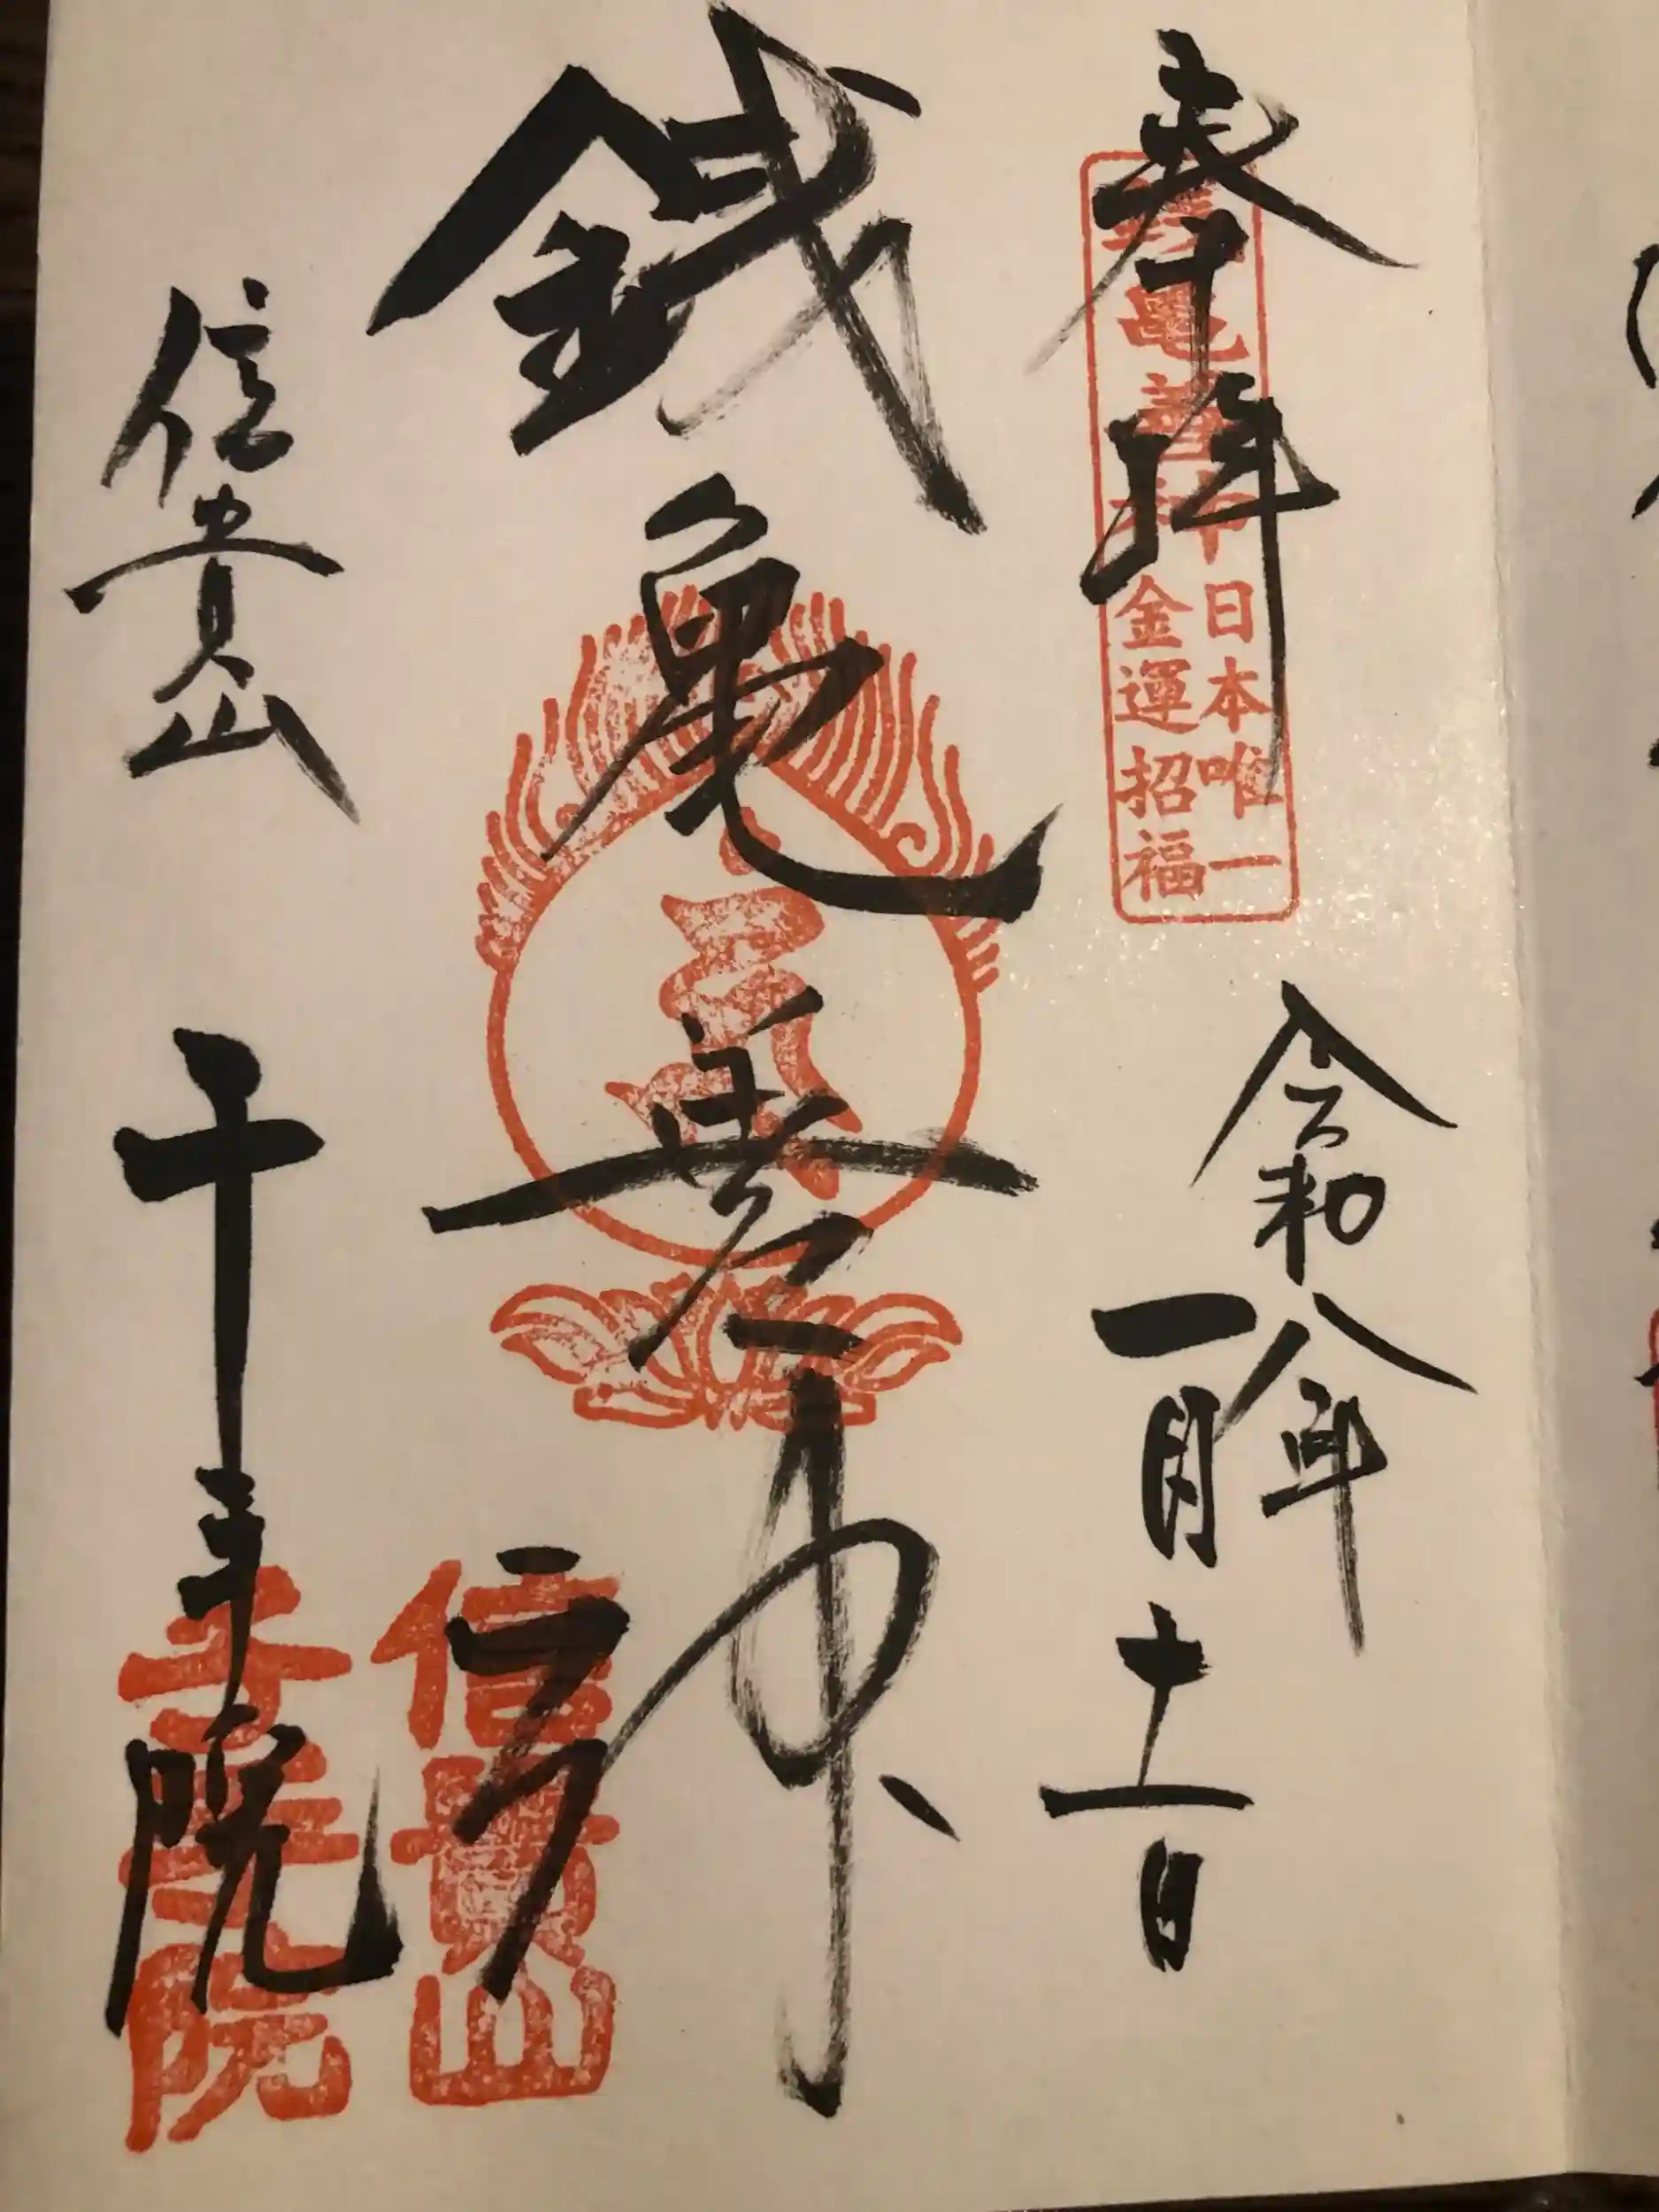 奉拝
銭亀善神
日本唯一
金運招福
令和八年
一月十一日
銭亀善神
信貴山
千手院
信貴山
千手院